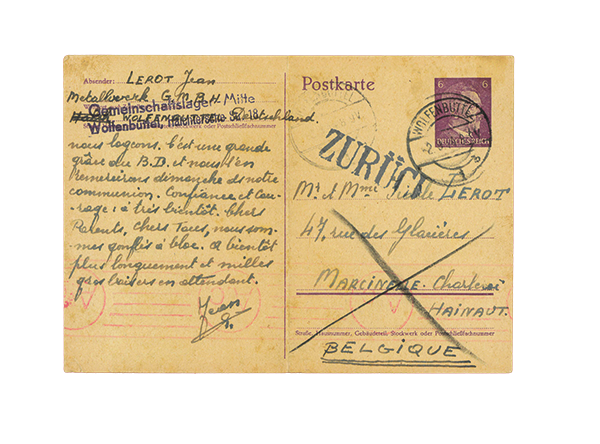 Absender: LEROT Jean
Metallwerk G.M.B.H.
Gemeinschaftslager Mitte
WOLFENBÜTTEL Deutschland.
Wolfenbüttel, Halchterstraße 18
nous logeons. C'est une grande
grâce du B.D. et nous l'en
remercirons dimanche ds notre
communion. Confiance et Cou-
rage: à très bientôt. Chers
Parents, chers Tous, nous som-
mes gonflés à bloc. A bientôt
plus longuement et milles
gros baisers en attendant.
Jean
Postkarte
6 6
DEUTSCHES REICH
WOLFENBÜTTEL
ZURÜCK
Mr et Mme LEROT
47, rue des Glacières
MARCINELLE. Charleroi
HAINAUT.
Straße, Hausnummer, Gebäudeteil, Stockwerk oder Postschließfachnummer
BELGIQUE